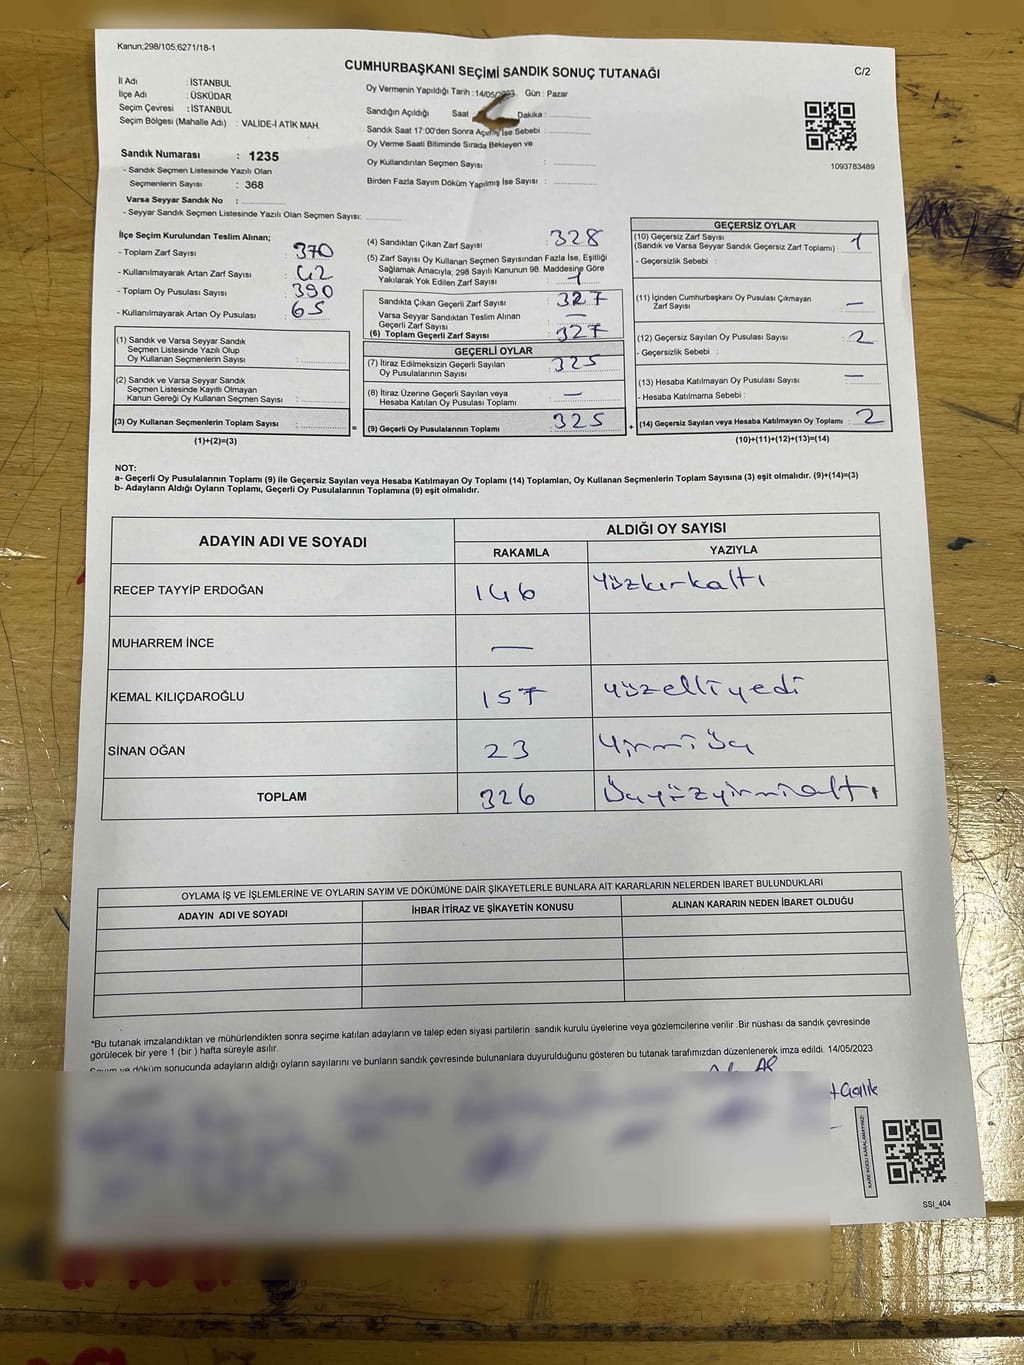 Kanun;298/105;6271/18-1
CUMHURBAŞKANI SEÇİMİ SANDIK SONUÇ TUTANAĞI
C/2
İl Adı : İSTANBUL
İlçe Adı : ÜSKÜDAR
Seçim Çevresi : İSTANBUL
Seçim Bölgesi (Mahalle Adı) : VALİDE-İ ATİK MAH.
Sandık Numarası : 1235
- Sandık Seçmen Listesinde Yazılı Olan
Seçmenlerin Sayısı : 368
Varsa Seyyar Sandık No :
- Seyyar Sandık Seçmen Listesinde Yazılı Olan Seçmen Sayısı:
Oy Vermenin Yapıldığı Tarih : 14/05/ Gün : Pazar
Sandığın Açıldığı Saat Dakika :
Sandık Saat 17:00'den Sonra İse Sebebi :
Oy Verme Saati Bitiminde Sırada Bekleyen ve
Oy Kullandırılan Seçmen Sayısı :
Birden Fazla Sayım Döküm Yapılmış İse Sayısı :
1093783489
İlçe Seçim Kurulundan Teslim Alınan;
- Toplam Zarf Sayısı : 370
- Kullanılmayarak Artan Zarf Sayısı : 42
- Toplam Oy Pusulası Sayısı : 390
- Kullanılmayarak Artan Oy Pusulası : 65
(1) Sandık ve Varsa Seyyar Sandık
Seçmen Listesinde Yazılı Olup
Oy Kullanan Seçmenlerin Sayısı :
(2) Sandık ve Varsa Seyyar Sandık
Seçmen Listesinde Kayıtlı Olmayan
Kanun Gereği Oy Kullanan Seçmen Sayısı :
(3) Oy Kullanan Seçmenlerin Toplam Sayısı :
(1)+(2)=(3)
(4) Sandıktan Çıkan Zarf Sayısı : 328
(5) Zarf Sayısı Oy Kullanan Seçmen Sayısından Fazla İse, Eşitliği
Sağlamak Amacıyla; 298 Sayılı Kanunun 98. Maddesine Göre
Yakılarak Yok Edilen Zarf Sayısı : 1
Sandıkta Çıkan Geçerli Zarf Sayısı : 327
Varsa Seyyar Sandıktan Teslim Alınan
Geçerli Zarf Sayısı : —
(6) Toplam Geçerli Zarf Sayısı : 327
GEÇERLİ OYLAR
(7) İtiraz Edilmeksizin Geçerli Sayılan
Oy Pusulalarının Sayısı : 325
(8) İtiraz Üzerine Geçerli Sayılan veya
Hesaba Katılan Oy Pusulası Toplamı : —
= (9) Geçerli Oy Pusulalarının Toplamı : 325
GEÇERSİZ OYLAR
(10) Geçersiz Zarf Sayısı
(Sandık ve Varsa Seyyar Sandık Geçersiz Zarf Toplamı) : 1
- Geçersizlik Sebebi :
(11) İçinden Cumhurbaşkanı Oy Pusulası Çıkmayan
Zarf Sayısı : —
(12) Geçersiz Sayılan Oy Pusulası Sayısı : 2
- Geçersizlik Sebebi :
(13) Hesaba Katılmayan Oy Pusulası Sayısı : —
- Hesaba Katılmama Sebebi :
+ (14) Geçersiz Sayılan veya Hesaba Katılmayan Oy Toplamı : 2
(10)+(11)+(12)+(13)=(14)
NOT:
a- Geçerli Oy Pusulalarının Toplamı (9) ile Geçersiz Sayılan veya Hesaba Katılmayan Oy Toplamı (14) Toplamları, Oy Kullanan Seçmenlerin Toplam Sayısına (3) eşit olmalıdır. (9)+(14)=(3)
b- Adayların Aldığı Oyların Toplamı, Geçerli Oy Pusulalarının Toplamına (9) eşit olmalıdır.
ADAYIN ADI VE SOYADI
ALDIĞI OY SAYISI
RAKAMLA YAZIYLA
RECEP TAYYİP ERDOĞAN 146 Yüzkırkaltı
MUHARREM İNCE —
KEMAL KILIÇDAROĞLU 157 yüzelliyedi
SİNAN OĞAN 23 Yirmiüç
TOPLAM 326 Üçyüzyirmialtı
OYLAMA İŞ VE İŞLEMLERİNE VE OYLARIN SAYIM VE DÖKÜMÜNE DAİR ŞİKAYETLERLE BUNLARA AİT KARARLARIN NELERDEN İBARET BULUNDUKLARI
ADAYIN ADI VE SOYADI İHBAR İTİRAZ VE ŞİKAYETİN KONUSU ALINAN KARARIN NEDEN İBARET OLDUĞU
*Bu tutanak imzalandıktan ve mühürlendikten sonra seçime katılan adayların ve talep eden siyasi partilerin sandık kurulu üyelerine veya gözlemcilerine verilir .Bir nüshası da sandık çevresinde
görülecek bir yere 1 (bir ) hafta süreyle asılır.
Sayım ve döküm sonucunda adayların aldığı oyların sayılarını ve bunların sandık çevresinde bulunanlara duyurulduğunu gösteren bu tutanak tarafımızdan düzenlenerek imza edildi. 14/05/2023
KARE KODU KARALAMAYINIZ!
SSI_404